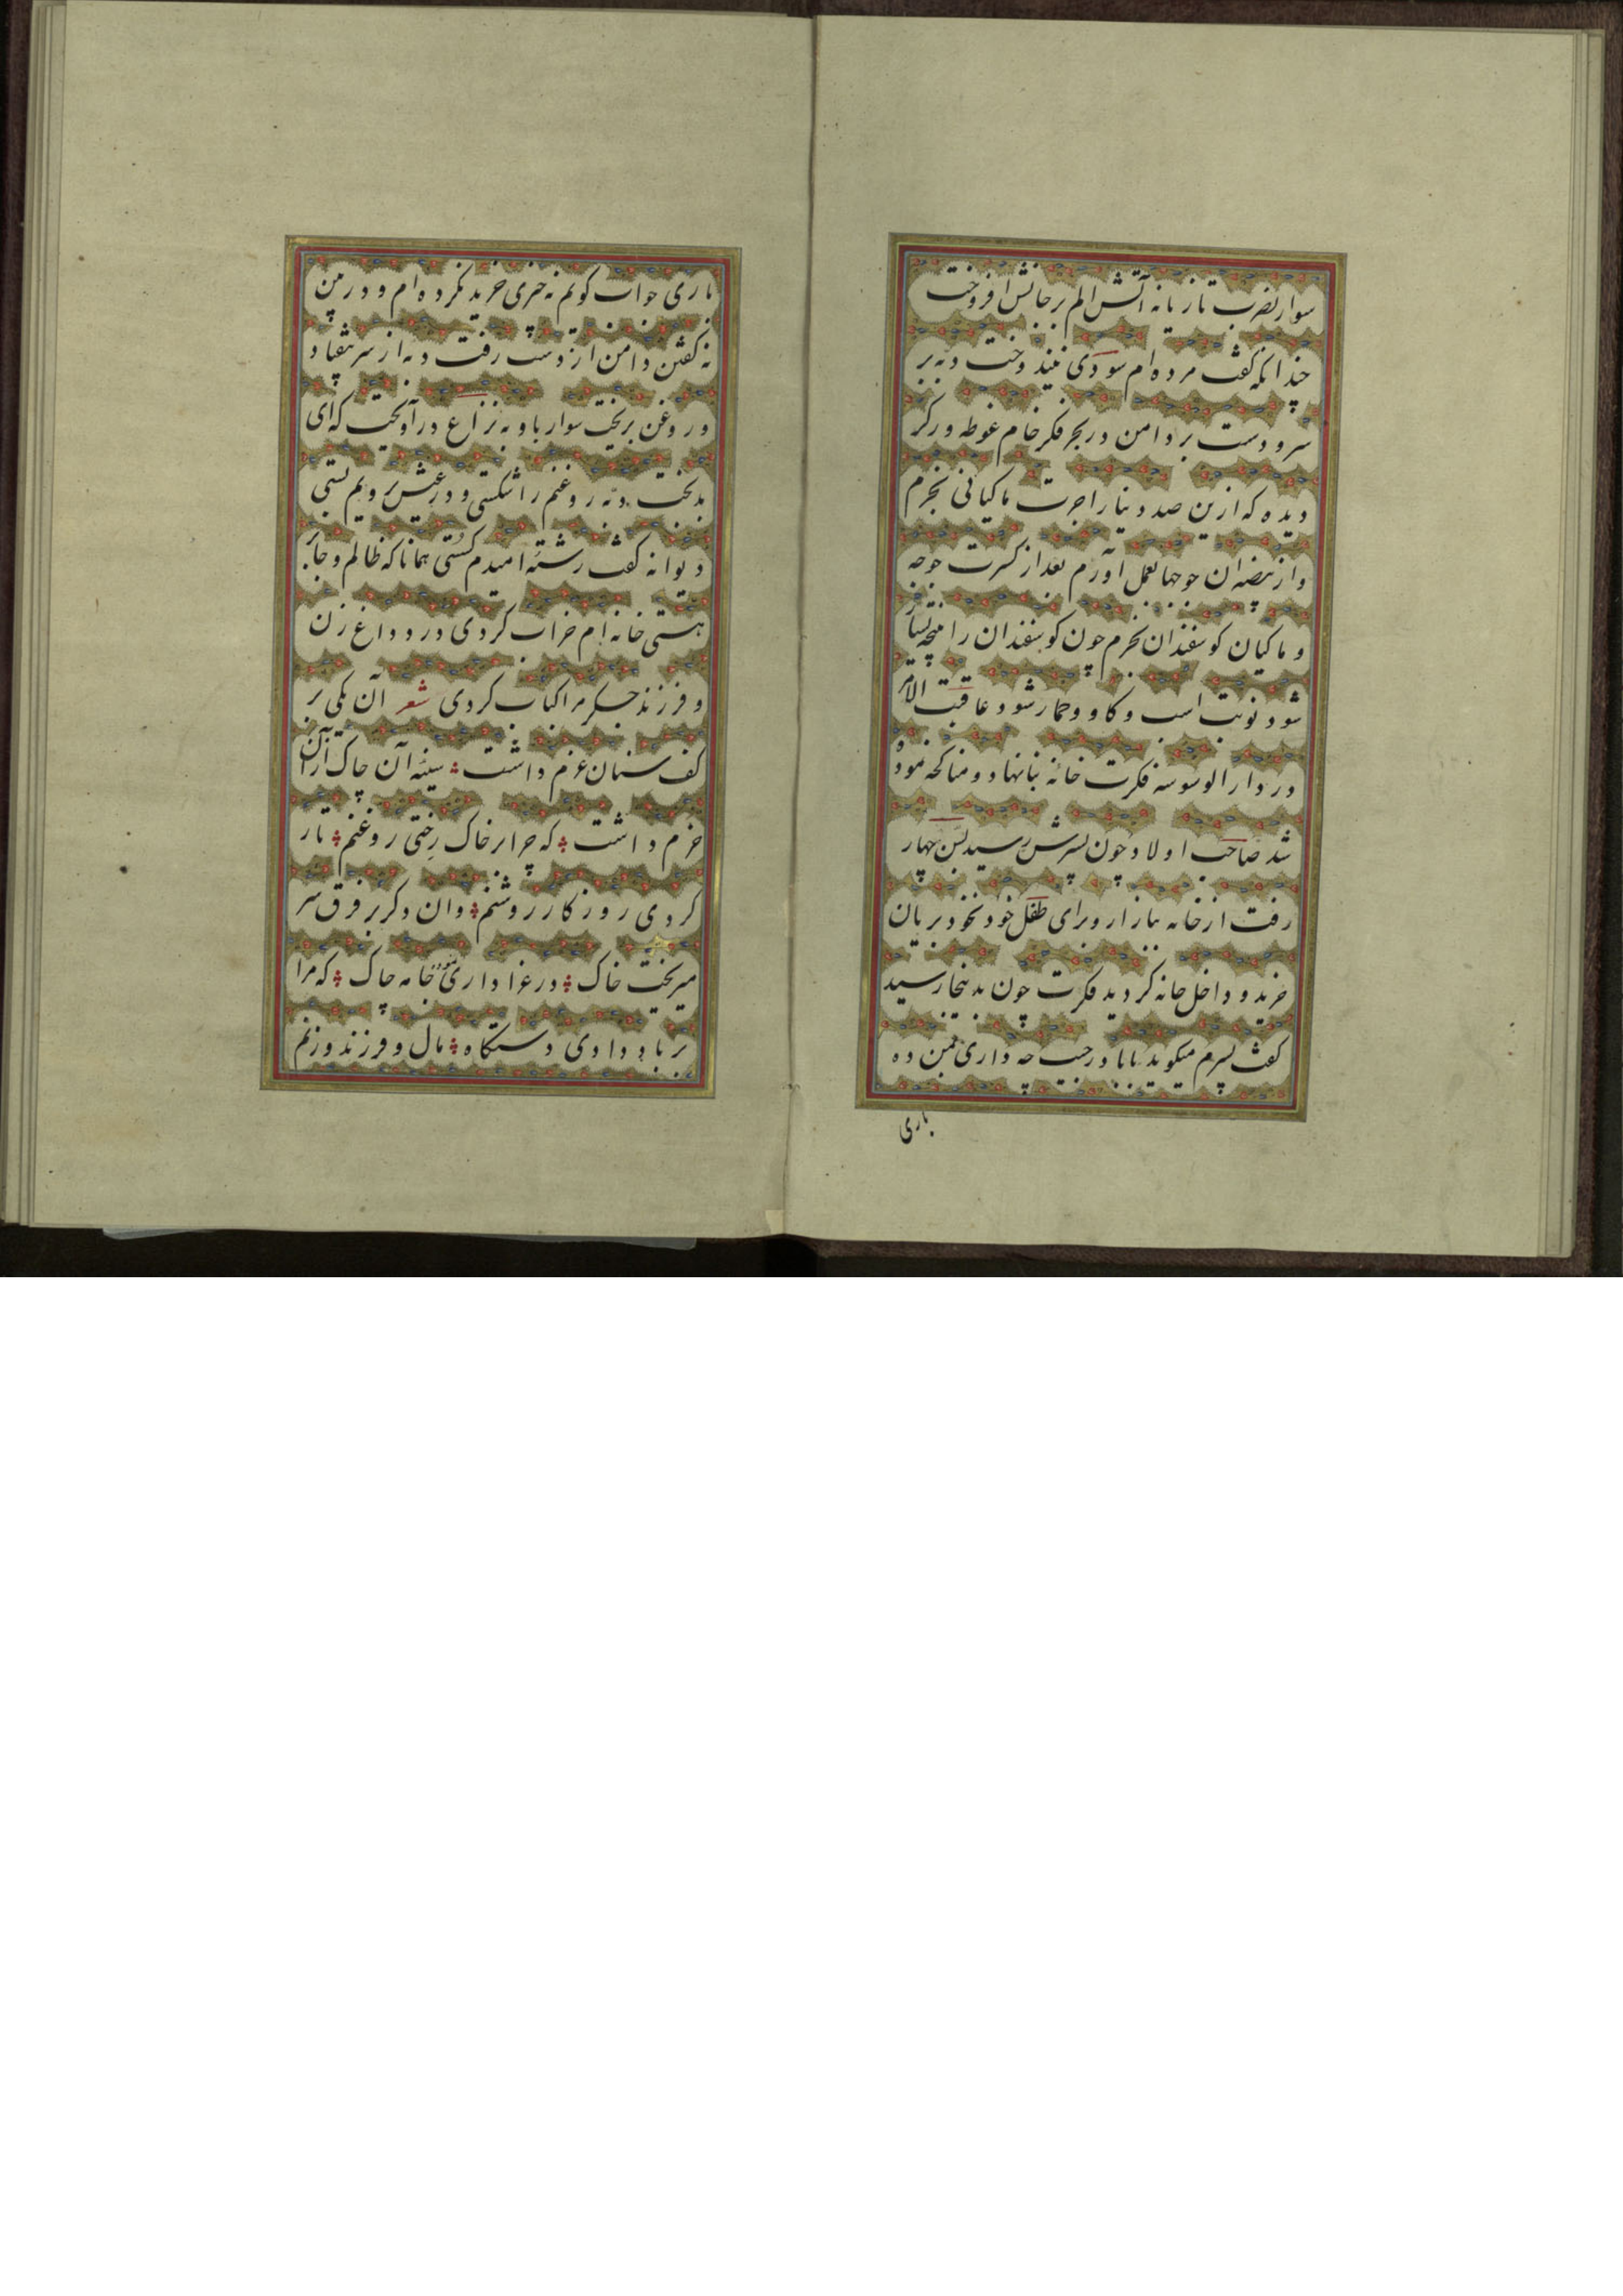 سوار بضرب تازیانه آتش الم برجانش افروخت
چندانکه گفت مرده ام سودی نیندوخت دبه بر
سر و دست بر دامن در بحر فکر خام غوطه ور کر
دیده که ازین صد دینار اجرت ماکیانی بخرم
واز بیضه ان جوجها بعمل آورم بعد از کسرت جوجه
و ماکیان کوسفندان بخرم چون کوسفندان را نتیجه بسیار
شود نوبت اسب و کاو و حمار شود عاقبت الامر
در دار الوسوسه فکرت خانه بنا نهاد و مناکحه نمود
شد صاحب اولاد چون پسرش رسید بسن چهار
رفت از خانه ببازار و برای طفل خود نخود بریان
خرید و داخل خانه کردید فکرت چون بدینجا رسید
کفت پسرم میکوید بابا در جیب چه داری بمن ده
باری
باری جواب کویم نه چیزی خرید نکرده ام و در من
نه کفتن دامن از دست رفت دبه از سر بیفتاد
و روغن بریخت سوار با او به نزاع درآویخت که ای
بدبخت دبه روغنم را شکستی و در عیش بر ویم بستی
دیوانه کفت رشته امیدم کسستی همانا که ظالم و جابر
هستی خانه ام خراب کردی در و داغ زن
و فرزند جکر مرا کباب کردی شعر آن یکی بر
کف سنان غم داشت سینه آن چاک از آن
خرم داشت که چرا بر خاک ریختی روغنم تار
کردی روز کار روشنم وان دکر بر فرق سر
میریخت خاک در عزاداری نموده جامه چاک که مرا
بر باد دادی دستکاه مال و فرزند و زنم